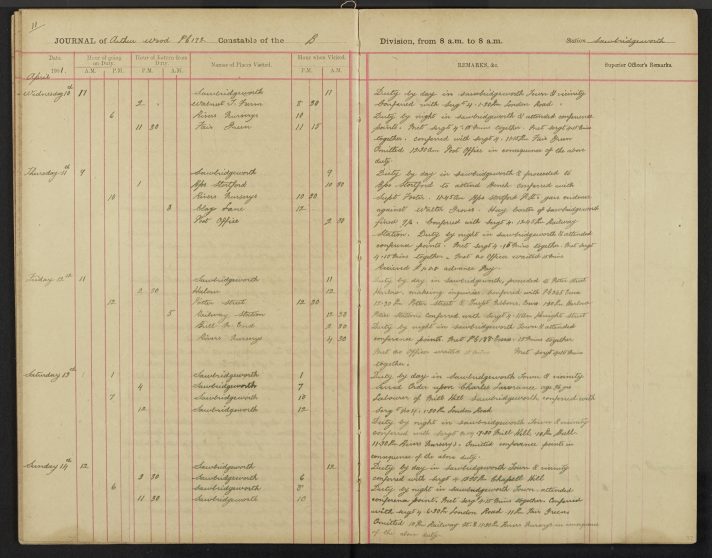 11
JOURNAL of Arthur Wood PC 178 Constable of the B Division, from 8 a.m. to 8 a.m. Station Sawbridgeworth
Date Hour of going on Duty. Hour of Return from Duty Names of Places Visited. Hour when Visited. REMARKS, &c. Superior Officer's Remarks.
1901. A.M. P.M. A.M. P.M. P.M. A.M.
April
Wednesday 10th 11 Sawbridgeworth 11 Duty by day in Sawbridgeworth Town & vicinity
2 Walnut T. Farm 8 30 Conferred with Sergt 4. 1.30 Pm London Road.
6 Rivers Nurserys 10 Duty by night in Sawbridgeworth & attended conference
11 30 Fair Green 11 15 points. Met Sergt 4 together. Met Sergt
together. Conferred with Sergt 4. Fair Green
Omitted Post Office in consequence of the above
duty.
Thursday 11th 9 Sawbridgeworth 9 Duty by day in Sawbridgeworth & proceeded to
1 Bps Stortford 10 30 Bps Stortford to attend Bench conferred with
10 Rivers Nurserys 10 30 Supt Foster. 11.45 am Bps Stortford gave evidence
3 Lane 12 against Walter of Sawbridgeworth
Post Office 2 30 fined Conferred with Sergt 4. 12.45 Pm Railway
Station. Duty by night in Sawbridgeworth & attended
conference points. Met Sergt 4. 15 mins together. Met Sergt
4. 15 mins together. Post Office waited
Received advance Pay.
Friday 12th 11 Sawbridgeworth 11 Duty by day in Sawbridgeworth proceeded to Potter Street
2 30 Harlow 12 Harlow making inquiries conferred with PC
12 Potter Street 12 30 12-30 Pm Potter Street & Harlow
5 Railway Station 12 30 Police Station conferred with Sergt 4. Knight Street
End 2 30 Duty by night in Sawbridgeworth Town & attended
Rivers Nurserys 4 30 conference points. Met PC 188 15 mins together
Met Officer waited Met Sergt
together.
Saturday 13th 1 Sawbridgeworth 1 Duty by day in Sawbridgeworth Town & vicinity
4 Sawbridgeworth 7 Served Order upon Charles Lawrance age
7 Sawbridgeworth 10 Labourer of Hill Sawbridgeworth conferred with
12 Sawbridgeworth 12 Sergt No 4. 1.30 Pm London Road
Duty by night in Sawbridgeworth Town & vicinity
conferred with Sergt Hill
11.30 Pm Rivers Nurserys. Omitted conference points in
consequence of the above duty.
Sunday 14th 12 Sawbridgeworth 12 Duty by day in Sawbridgeworth Town & vicinity
2 30 Sawbridgeworth 6 conferred with Sergt 4 Chapell Hill
6 Sawbridgeworth 8 Duty by night in Sawbridgeworth Town. attended
11 30 Sawbridgeworth 10 conference point. Met Sergt 4 15 mins together. Conferred
with Sergt 4. 6.30 Pm London Road. 11 Pm Fair Green
Omitted 10 Pm Railway St. & 11.30 Pm Rivers Nurserys in consequence
of the above duty.